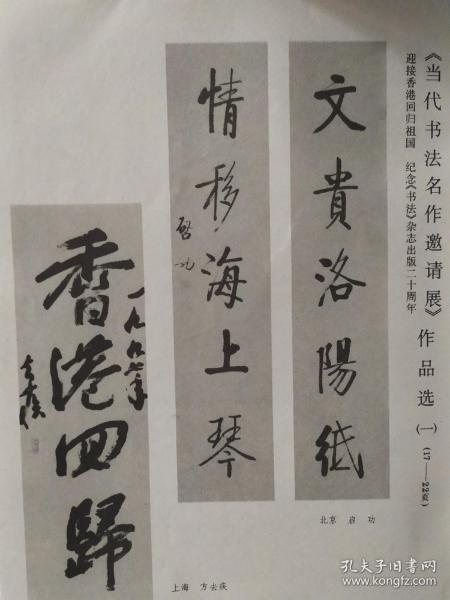 《当代书法名作邀请展》作品选（一）（17——22页）
迎接香港回归祖国　纪念《书法》杂志出版二十周年
文貴洛陽紙
北京　启　功
情移海上琴
启功
香港回歸
一九九七年
去疾
上海　方去疾
孔夫子旧书网
www.kongfz.com